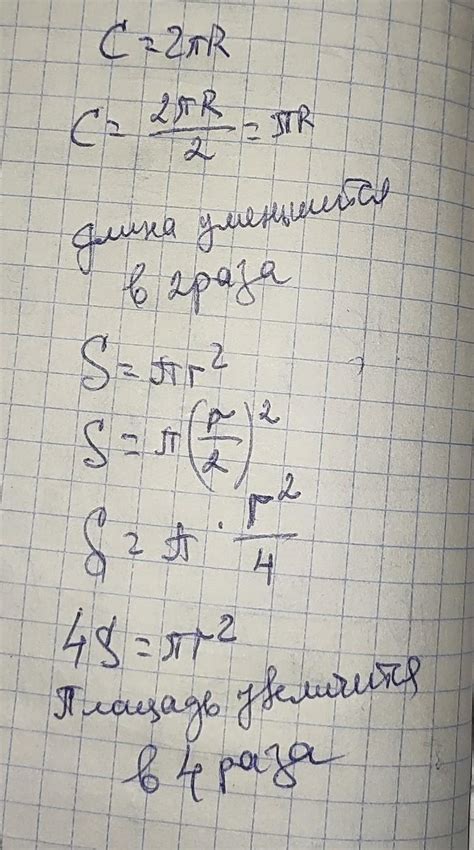 C = 2πR
C = 2πR/2 = πR
длина уменьшится
в 2 раза
S = πr²
S = π(r/2)²
S = π · r²/4
4S = πr²
Площадь увеличится
в 4 раза